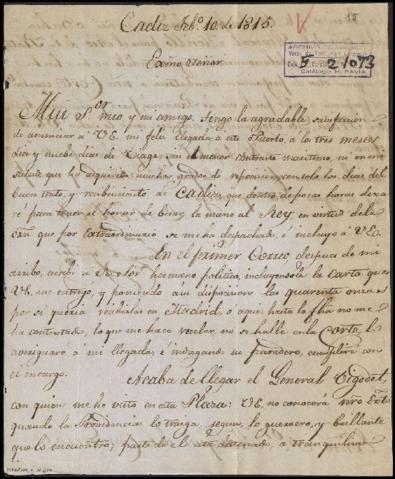 Cadiz Feb.o 10. de 1815.
Exmo. Señor
Mui S.or mio, y mi amigo, tengo la agradable satisfaccion
de anunciar a VE. mi feliz llegada a este Puerto, a los tres meses
dias y nuebe dias de Viage, sin el menor contraste maritimo, ni en mi
salud
buen trato, y recibimiento de Cadiz, que dentro de pocas horas dexa
re para tener el honor de besar la mano al Rey en virtud de la
orn que por extraordinario se me ha despachado, é incluyo a VE.
En el primer Correo, despues de mi
arribo, escribi a su Sor hermano politico, incluyendole la Carta que
VE. me entrego, y poniendo a su disposicion las quarenta onzas
por si queria recibirlas en Madrid, o aqui: hasta la fha no me
ha contestado, lo que me hace recelar no se halle en la Corte, lo
averiguaré a mi llegada, é indagando su paradero, cumpliré con
el encargo.
Acaba de llegar el General Vigodet,
con quien me he visto en esta Plaza: VE. no conocerá nro Exto
quando la Providencia lo traiga, segun lo guerrero, y brillante
que lo encuentro; parte de el está destinado a tranquilizar